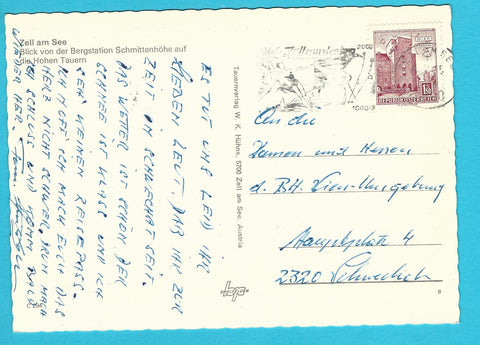 Zell am See
Blick von der Bergstation Schmittenhöhe auf
die Hohen Tauern
ES TUT UNS LEID IHR
LIEBEN LEUT DAS IHR ZUR
ZEIT IM SCHLECHT SEIT.
DAS WETTER IST SCHÖN DER
SCHNEE IST KLASS UND ICH
SEH MEINEN REISEPASS.
ICH HOFF ICH MACH EUCH DAS
HERZ NICHT SCHWER, DRUM MACH
ICH SCHLUSS UND KOMM BALD
WIEDER HER.
Tauernverlag W. K. Hühne, 5700 Zell am See, Austria
Zell am See
REPUBLIK ÖSTERREICH
An die
Damen und Herren
d. BH. Wien-Umgebung
Hauptplatz 4
2320 Schwechat